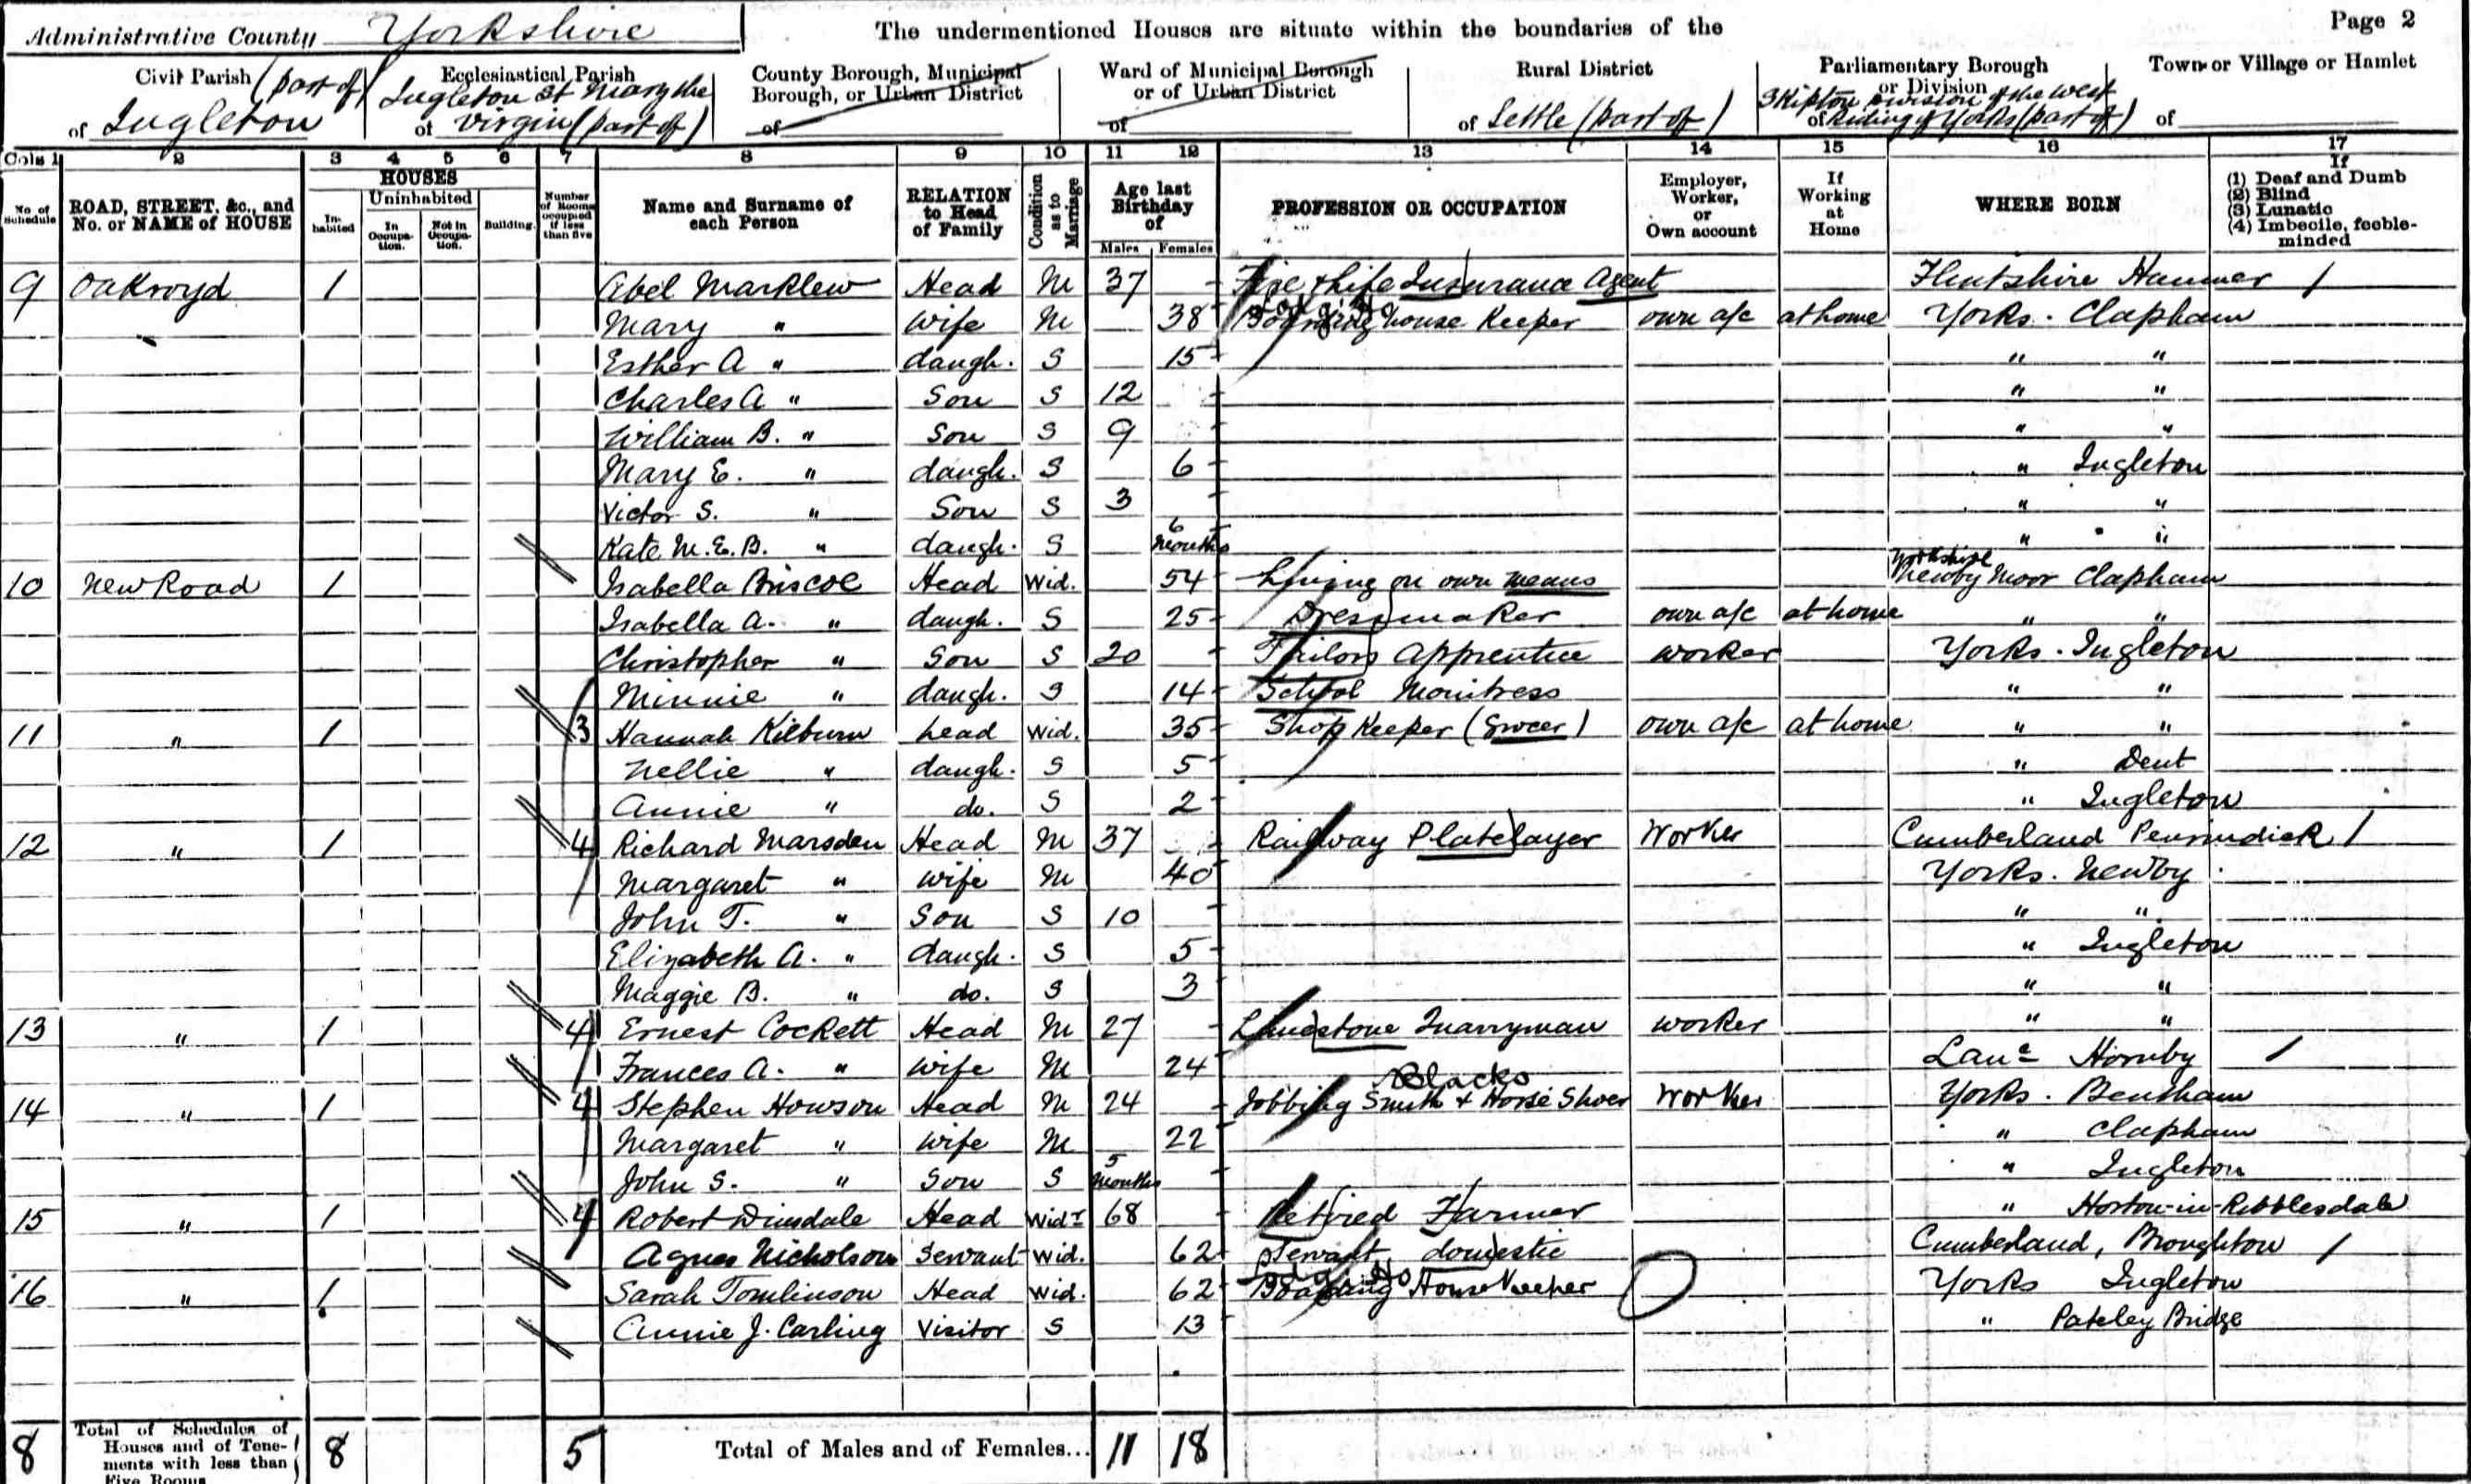 Administrative County Yorkshire The undermentioned Houses are situate within the boundaries of the Page 2
Civil Parish (part of) Ecclesiastical Parish County Borough, Municipal Borough, or Urban District Ward of Municipal Borough or of Urban District Rural District Parliamentary Borough or Division Town or Village or Hamlet
of Ingleton of Ingleton St Mary the Virgin (part of) of of of Settle (part of) of Skipton Division of the West Riding of Yorks (part of) of
Cols 1 2 3 4 5 6 7 8 9 10 11 12 13 14 15 16 17
No of Schedule ROAD, STREET, &c., and No. or NAME of HOUSE HOUSES Inhabited Uninhabited In Occupation. Not in Occupation. Building. Number of Rooms occupied if less than five Name and Surname of each Person RELATION to Head of Family Condition as to Marriage Age last Birthday of Males Females PROFESSION OR OCCUPATION Employer, Worker, or Own account If Working at Home WHERE BORN If (1) Deaf and Dumb (2) Blind (3) Lunatic (4) Imbecile, feeble-minded
9 Oakroyd 1 Abel Marklew Head M 37 Fire & Life Insurance Agent Flintshire Hanmer /
Mary " Wife M 38 Boarding house Keeper own a/c at home Yorks. Clapham
Esther A " daugh. S 15 " "
Charles A " Son S 12 " "
William B. " Son S 9 " "
Mary E. " daugh. S 6 " Ingleton
Victor S. " Son S 3 " "
Kate M.E.B. " daugh. S 6 months " "
10 New Road 1 Isabella Briscoe Head Wid. 54 Living on own means Yorkshire Newby Moor Clapham
Isabella A. " daugh. S 25 Dressmaker own a/c at home " "
Christopher " Son S 20 Tailors Apprentice worker Yorks. Ingleton
Minnie " daugh. S 14 School Monitress " "
11 " 1 3 Hannah Kilburn head Wid. 35 Shop Keeper (Grocer) own a/c at home " "
Nellie " daugh. S 5 " Dent
Annie " do. S 2 " Ingleton
12 " 1 4 Richard Marsden Head M 37 Railway Platelayer Worker Cumberland /
Margaret " wife M 40 Yorks. Newby
John T. " Son S 10 " "
Elizabeth A. " daugh. S 5 " Ingleton
Maggie B. " do. S 3 " "
13 " 1 4 Ernest Cockett Head M 27 Limestone Quarryman worker " "
Frances A. " wife M 24 Lanc Hornby /
14 " 1 4 Stephen Howson Head M 24 Jobbing Blacks Smith & Horse Shoer Worker Yorks. Bentham
Margaret " wife M 22 " Clapham
John S. " Son S 5 months " Ingleton
15 " 1 4 Robert Dinsdale Head Widr 68 Retired Farmer " Horton-in-Ribblesdale
Agnes Nicholson Servant Wid. 62 Servant domestic Cumberland, Broughton /
16 " 1 Sarah Tomlinson Head Wid. 62 Boarding House Keeper Yorks Ingleton
Annie J. Carling Visitor S 13 " Pateley Bridge
8 Total of Schedules of Houses and of Tenements with less than Five Rooms 8 5 Total of Males and of Females... 11 18